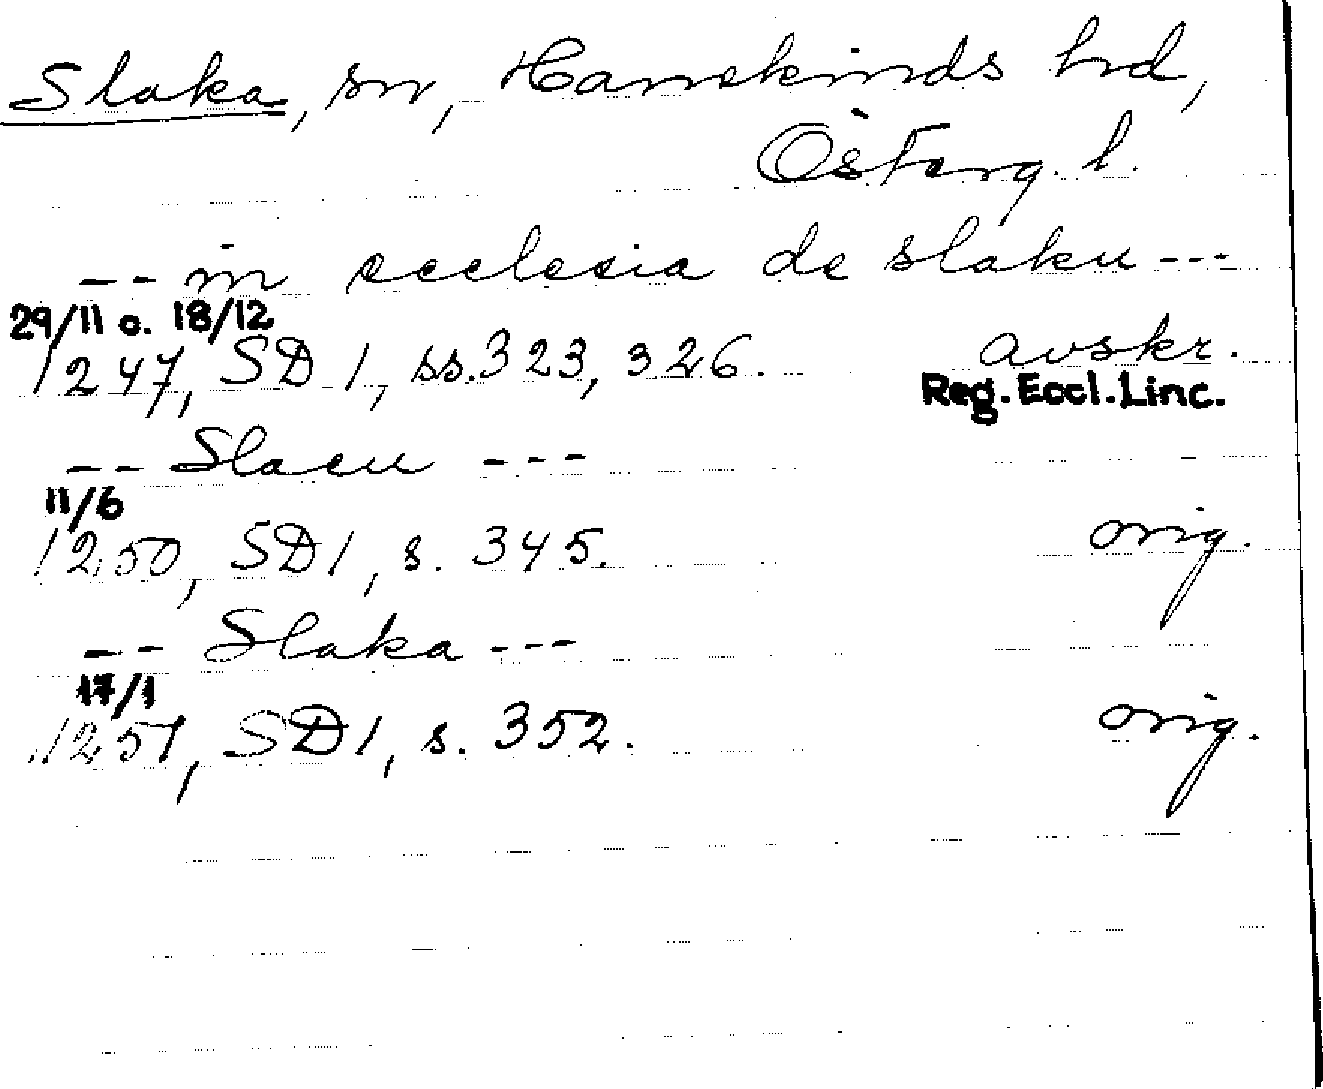 Slaka, sn, Hanekinds hd,
Österg. l.
-- in ecclesia de slaku ---
29/11 o. 18/12
1247, SD 1, ss. 323, 326. avskr.
Reg. Eccl. Linc.
-- Slacu ---
11/6
1250, SD 1, s. 345. orig.
-- Slaka ---
17/1
1251, SD 1, s. 352. orig.